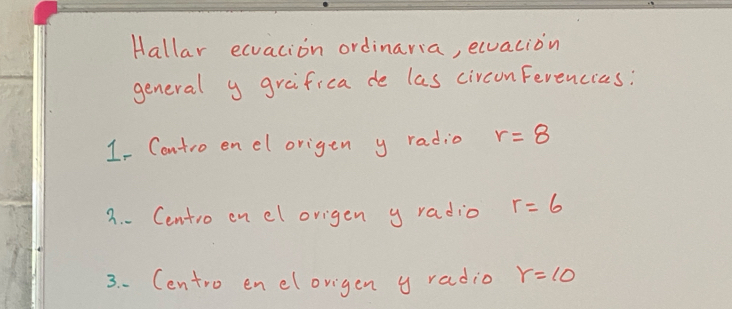 Hallar ecuación ordinaria, ecuación
general y gráfica de las circunferencias:
1.- Centro en el origen y radio r=8
2.- Centro en el origen y radio r=6
3.- Centro en el origen y radio r=10